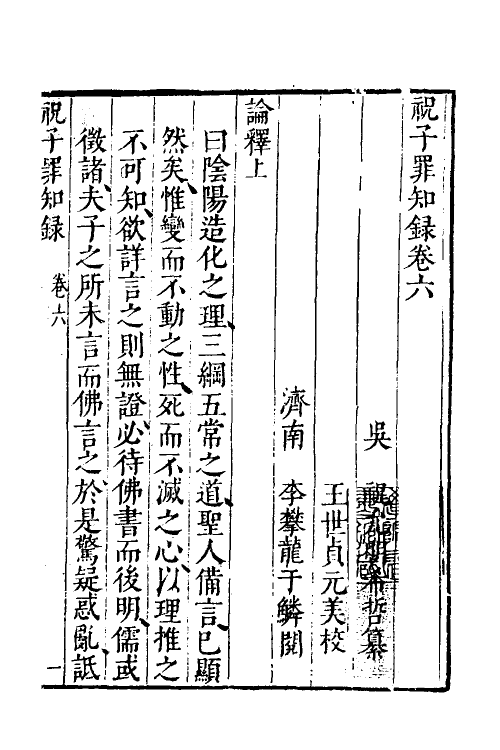 祝子罪知録卷六
吳 祝允明希哲纂
王世貞元美校
濟南 李攀龍于鱗閱
論釋上
曰陰陽造化之理、三綱五常之道、聖人備言、已顯
然矣、惟變而不動之性、死而不滅之心、以理推之
不可知、欲詳言之則無證、必待佛書而後明、儒或
徵諸、夫子之所未言而佛言之、於是驚疑惑亂、詆
祝子罪知録 卷六 一